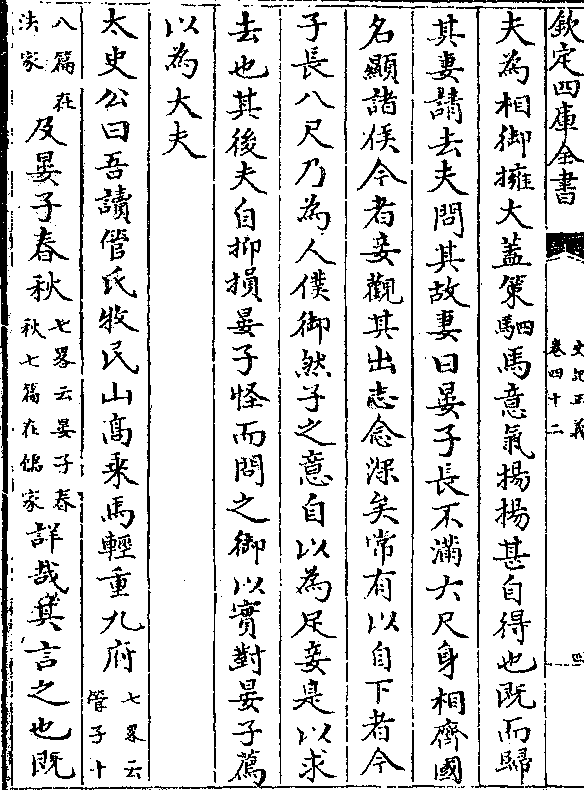 欽定四庫全書
史記正義
卷四十二
四
夫為相御擁大蓋策駟馬意氣揚揚甚自得也既而歸
其妻請去夫問其故妻曰晏子長不滿六尺身相齊國
名顯諸侯今者妾觀其出志念深矣常有以自下者今
子長八尺乃為人僕御然子之意自以為足妾是以求
去也其後夫自抑損晏子怪而問之御以實對晏子薦
以為大夫
太史公曰吾讀管氏牧民山高乘馬輕重九府
七畧云
管子十
八篇在
法家
及晏子春秋
七畧云晏子春
秋七篇在儒家
詳哉其言之也既